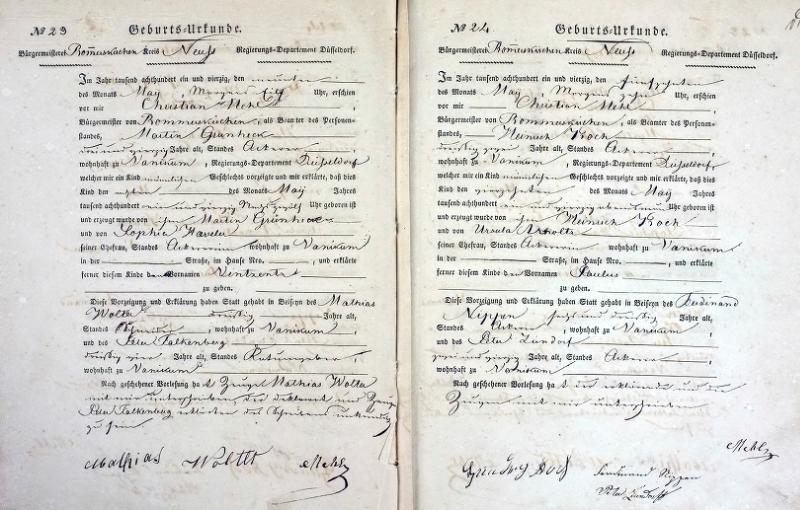 № 23 Geburts-Urkunde.
Bürgermeisterei Rommerskirchen Kreis Neuß Regierungs-Departement Düsseldorf.
Im Jahr tausend achthundert ein und vierzig, den neunten
des Monats May, Morgens Uhr, erschien
vor mir Christian Mehl
Bürgermeister von Rommerskirchen, als Beamter des Personen-
standes, Martin Grünheck
und vierzig Jahre alt, Standes Ackerer
wohnhaft zu Vanikum, Regierungs-Departement Düsseldorf,
welcher mir ein Kind männlichen Geschlechts vorzeigte und mir erklärte, daß dies
Kind den des Monats May Jahres
tausend achthundert ein und vierzig Uhr geboren ist
und erzeugt wurde von ihm Martin Grünheck
und von Sophia
seiner Ehefrau, Standes Ackerin wohnhaft zu Vanikum
in der Straße, im Hause Nro. , und erklärte
ferner diesem Kinde den Vornamen
zu geben.
Diese Vorzeigung und Erklärung haben Statt gehabt in Beiseyn des Mathias
Wolter dreißig Jahre alt,
Standes , wohnhaft zu Vanikum
und des Peter Falkenberg
dreißig vier Jahre alt, Standes
wohnhaft zu Vanikum
Nach geschehener Vorlesung hat Zeuge Mathias Wolter
mit mir unterschrieben, der Deklarant und Zeuge
Peter Falkenberg erklärten des Schreibens unkundig
zu sein
Mathias Mehl
№ 24 Geburts-Urkunde.
Bürgermeisterei Rommerskirchen Kreis Neuß Regierungs-Departement Düsseldorf.
Im Jahr tausend achthundert ein und vierzig, den fünfzehnten
des Monats May, Morgens zehn Uhr, erschien
vor mir Christian Mehl
Bürgermeister von Rommerskirchen, als Beamter des Personen-
standes, Heinrich Koch
dreißig Jahre alt, Standes Ackerer
wohnhaft zu Vanikum, Regierungs-Departement Düsseldorf,
welcher mir ein Kind männlichen Geschlechts vorzeigte und mir erklärte, daß dies
Kind den vierzehnten des Monats May Jahres
tausend achthundert ein und vierzig Uhr geboren ist
und erzeugt wurde von ihm Heinrich Koch
und von Ursula
seiner Ehefrau, Standes Ackerin wohnhaft zu Vanikum
in der Straße, im Hause Nro. , und erklärte
ferner diesem Kinde den Vornamen Paulus
zu geben.
Diese Vorzeigung und Erklärung haben Statt gehabt in Beiseyn des Ferdinand
Nippen sechs und dreißig Jahre alt,
Standes Ackerer, wohnhaft zu Vanikum
und des Peter Zündorf
und vierzig Jahre alt, Standes Ackerer
wohnhaft zu Vanikum
Nach geschehener Vorlesung hat der erklärende und die
Zeugen mit mir unterschrieben
Mehl
Ferdinand Nippen
Peter Zündorf